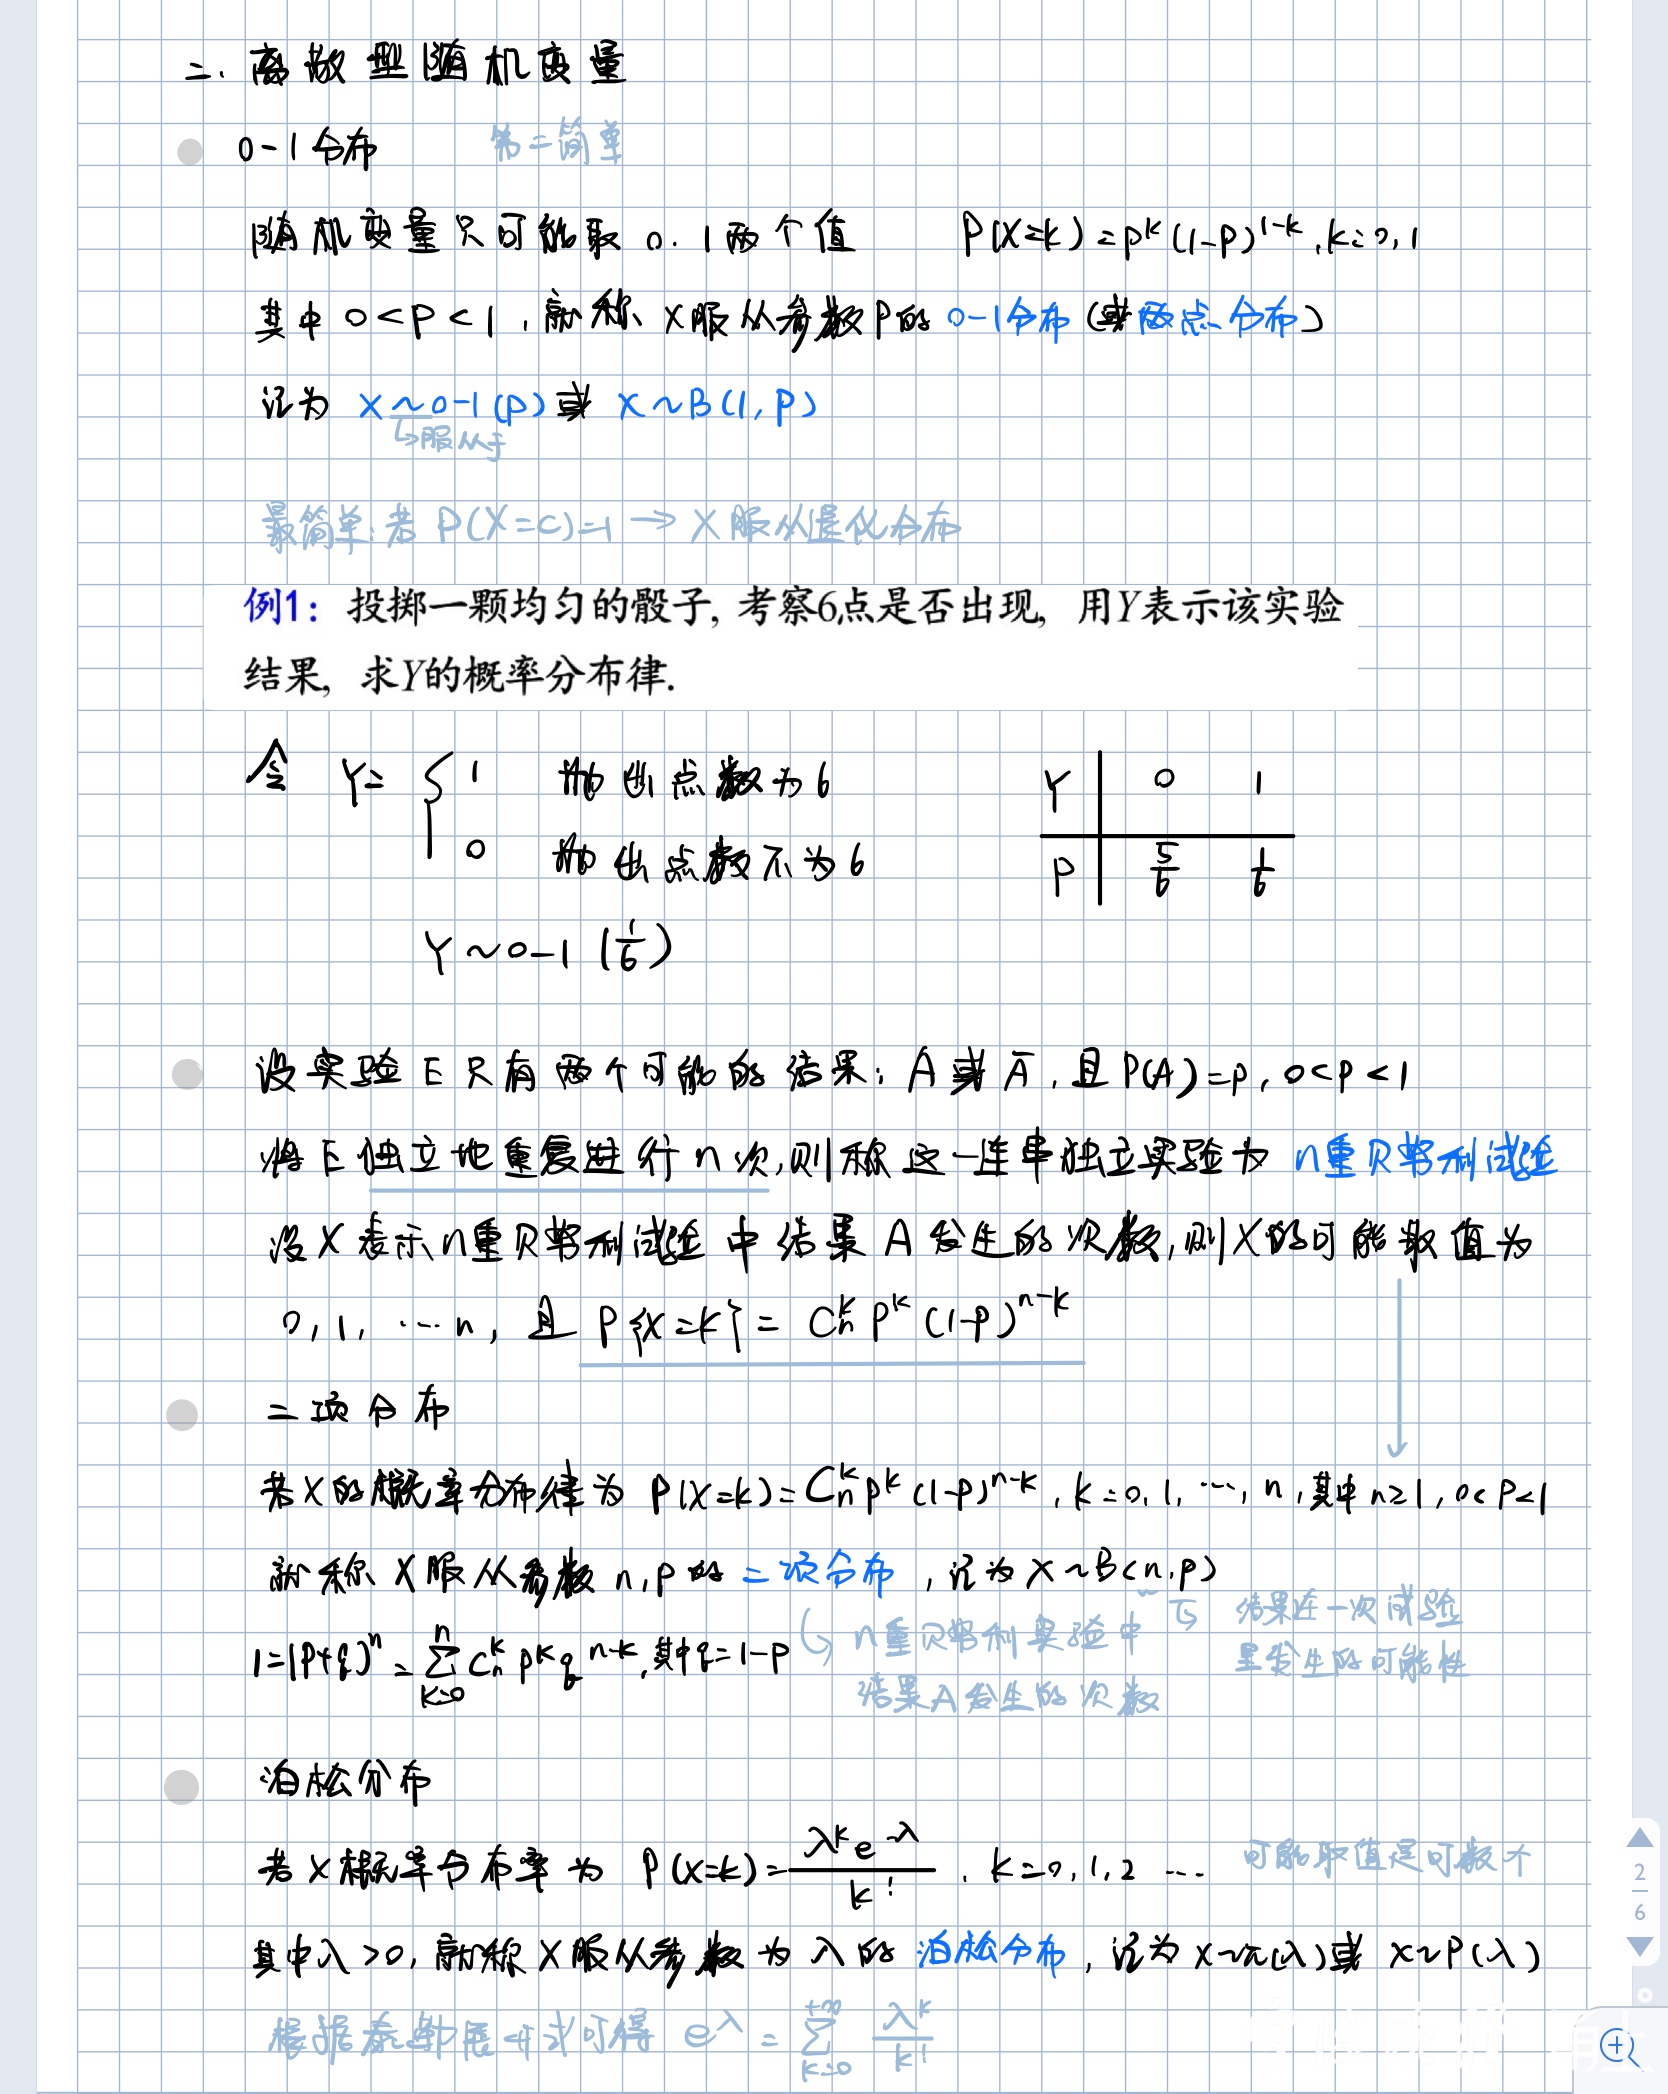 二. 离散型随机变量
0-1分布 第二简单
随机变量只可能取 0. 1 两个值 P(X=k)=p^k(1-p)^{1-k}, k=0,1
其中 0<p<1, 就称 X服从参数P的 0-1分布 (或两点分布)
记为 X~0-1(p) 或 X~B(1,p)
↳服从于
最简单: 若 P(X=c)=1 → X服从退化分布
例1: 投掷一颗均匀的骰子, 考察6点是否出现, 用Y表示该实验
结果, 求Y的概率分布律.
令 Y= { 1 抛出点数为6
0 抛出点数不为6
Y 0 1
P 5/6 1/6
Y~0-1 (1/6)
设实验E只有两个可能的结果: A或Ā, 且P(A)=p, 0<p<1
将E独立地重复进行n次, 则称这一连串独立实验为 n重贝努利试验
设X表示n重贝努利试验中结果A发生的次数, 则X的可能取值为
0, 1, …n, 且 P{X=k}= C_n^k p^k (1-p)^{n-k}
二项分布
若X的概率分布律为 P(X=k)=C_n^k p^k (1-p)^{n-k}, k=0,1,…,n, 其中n≥1, 0<p<1
就称X服从参数n,p的二项分布, 记为X~B(n,p)
1=(p+q)^n = ∑_{k=0}^{n} C_n^k p^k q^{n-k}, 其中q=1-p
n重贝努利实验中
结果A发生的次数
结果在一次试验
里发生的可能性
泊松分布
若X概率分布率为 P(X=k)= λ^k e^{-λ} / k! , k=0,1,2 … 可能取值是可数个
其中λ>0, 就称X服从参数为λ的泊松分布, 记为X~π(λ)或 X~P(λ)
根据泰勒展开式可得 e^λ = ∑_{k=0}^{+∞} λ^k / k!
2
6